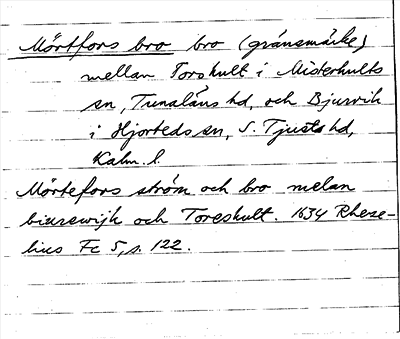 Mörtfors bro bro (gränsmärke)
mellan Torshult i Misterhults
sn, Tunaläns hd, och Bjursvik
i Hjorteds sn, S. Tjusts hd,
Kalm. l.
Mörtefors ström och bro melan
biurswijk och Toreshult. 1634 Rheze-
lius Fc 5, s. 122.